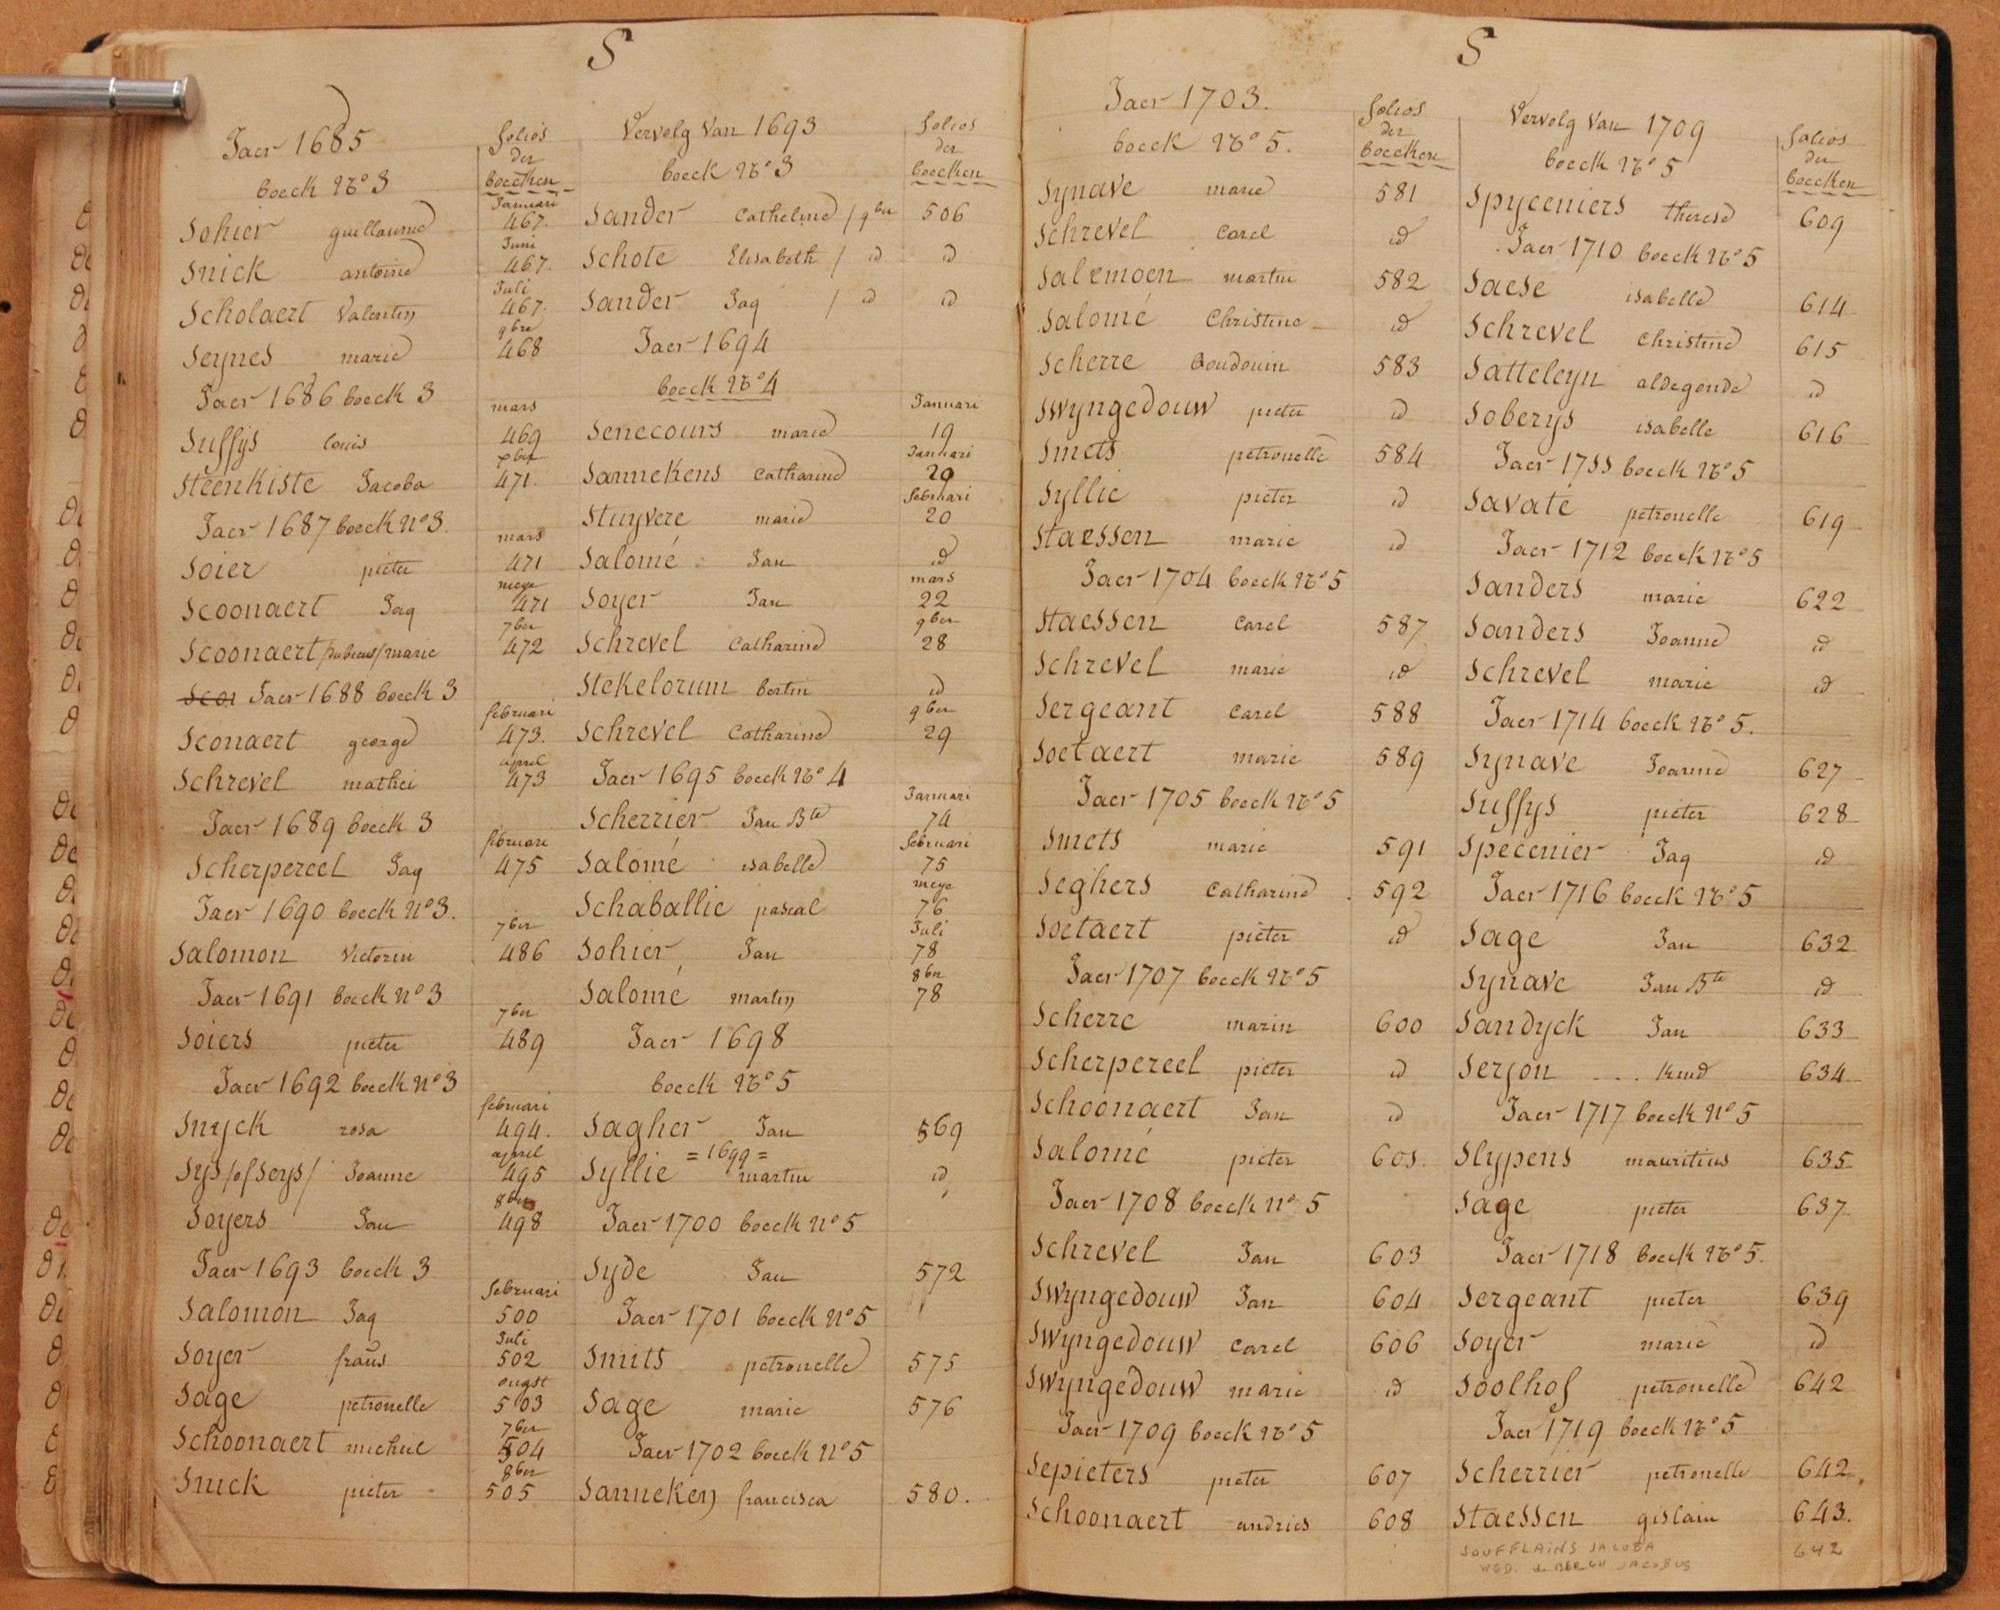 S
Jaer 1685
folios
der
boecken
boeck No 3
Januari
Sohier guillaume 467.
Juni
Snick antoine 467.
Juli
Scholaert Valentin 467.
9bre
Seynes marie 468
Jaer 1686 boeck 3
mars
Suffys louis 469
Steenkiste Jacoba 471.
Jaer 1687 boeck No 3.
mars
Soier pieter 471
meye
Scoonaert Jaq 471
7ber
Scoonaert / marie 472
Scoi Jaer 1688 boeck 3
februari
Sconaert george 473.
april
Schrevel mathei 473
Jaer 1689 boeck 3
februari
Scherpereel Jaq 475
Jaer 1690 boeck No 3.
7ber
Salomon Victorin 486
Jaer 1691 boeck No 3
7ber
Soiers pieter 489
Jaer 1692 boeck No 3
februari
Snyck rosa 494.
april
Sys/of Seys/ Joanne 495
8ber
Soyers Jan 498
Jaer 1693 boeck 3
februari
Salomon Jaq 500
Juli
Soyer frans 502
ougst
Sage petronelle 503
7ber
Schoonaert michiel 504
8ber
Snick pieter 505
Vervolg Van 1693
folios
der
boecken
boeck No 3
Sander Catheline / 9ber 506
Schote Elisabeth / id id
Sander Jaq / id id
Jaer 1694
boeck No 4
Januari
Senecours marie 19
Januari
Sannekens Catharine 20
februari
Stuyvere marie 20
Salomé Jan id
mars
Soyer Jan 22
9ber
Schrevel Catharine 28
Stekelorum bertin id
9ber
Schrevel Catharine 29
Jaer 1695 boeck No 4
Januari
Scherrier Jan Bte 74
februari
Salomé isabelle 75
meye
Schaballie pascal 76
Juli
Sohier Jan 78
8ber
Salomé martin 78
Jaer 1698
boeck No 5
Sagher Jan 569
= 1699 =
Syllie martin id
Jaer 1700 boeck No 5
Syde Jan 572
Jaer 1701 boeck No 5
Smits petronelle 575
Sage marie 576
Jaer 1702 boeck No 5
Sanneken francisca 580.
S
Jaer 1703.
folios
der
boecken
boeck No 5.
Synave marie 581
Schrevel Carel id
Salemoen martin 582
Salomé Christine id
Scherre Boudouin 583
Swyngedouw pieter id
Smets petronelle 584
Syllie pieter id
Staessen marie id
Jaer 1704 boeck No 5
Staessen Carel 587
Schrevel marie id
Sergeant Carel 588
Soetaert marie 589
Jaer 1705 boeck No 5
Smets marie 591
Seghers Catharine 592
Soetaert pieter id
Jaer 1707 boeck No 5
Scherre marin 600
Scherpereel pieter id
Schoonaert Jan id
Salomé pieter 601.
Jaer 1708 boeck No 5
Schrevel Jan 603
Swyngedouw Jan 604
Swyngedouw Carel 606
Swyngedouw marie id
Jaer 1709 boeck No 5
Sepieters pieter 607
Schoonaert andries 608
Vervolg Van 1709
folios
der
boecken
boeck No 5
Spyceniers therese 609
Jaer 1710 boeck No 5
Saese isabelle 614
Schrevel Christine 615
Satteleyn aldegonde id
Soberys isabelle 616
Jaer 1711 boeck No 5
Savate petronelle 619
Jaer 1712 boeck No 5
Sanders marie 622
Sanders Joanne id
Schrevel marie id
Jaer 1714 boeck No 5.
Synave Joanne 627
Suffys pieter 628
Specenier Jaq id
Jaer 1716 boeck No 5
Sage Jan 632
Synave Jan Bte id
Sandyck Jan 633
Serjon ... kind 634
Jaer 1717 boeck No 5
Slypens mauritius 635
Sage pieter 637
Jaer 1718 boeck No 5.
Sergeant pieter 639
Soyer marie id
Soolhof petronelle 642
Jaer 1719 boeck No 5
Scherrier petronelle 642.
Staessen gislain 643.
SOUFFLAINS JACOBA 642
WED. JACOBUS